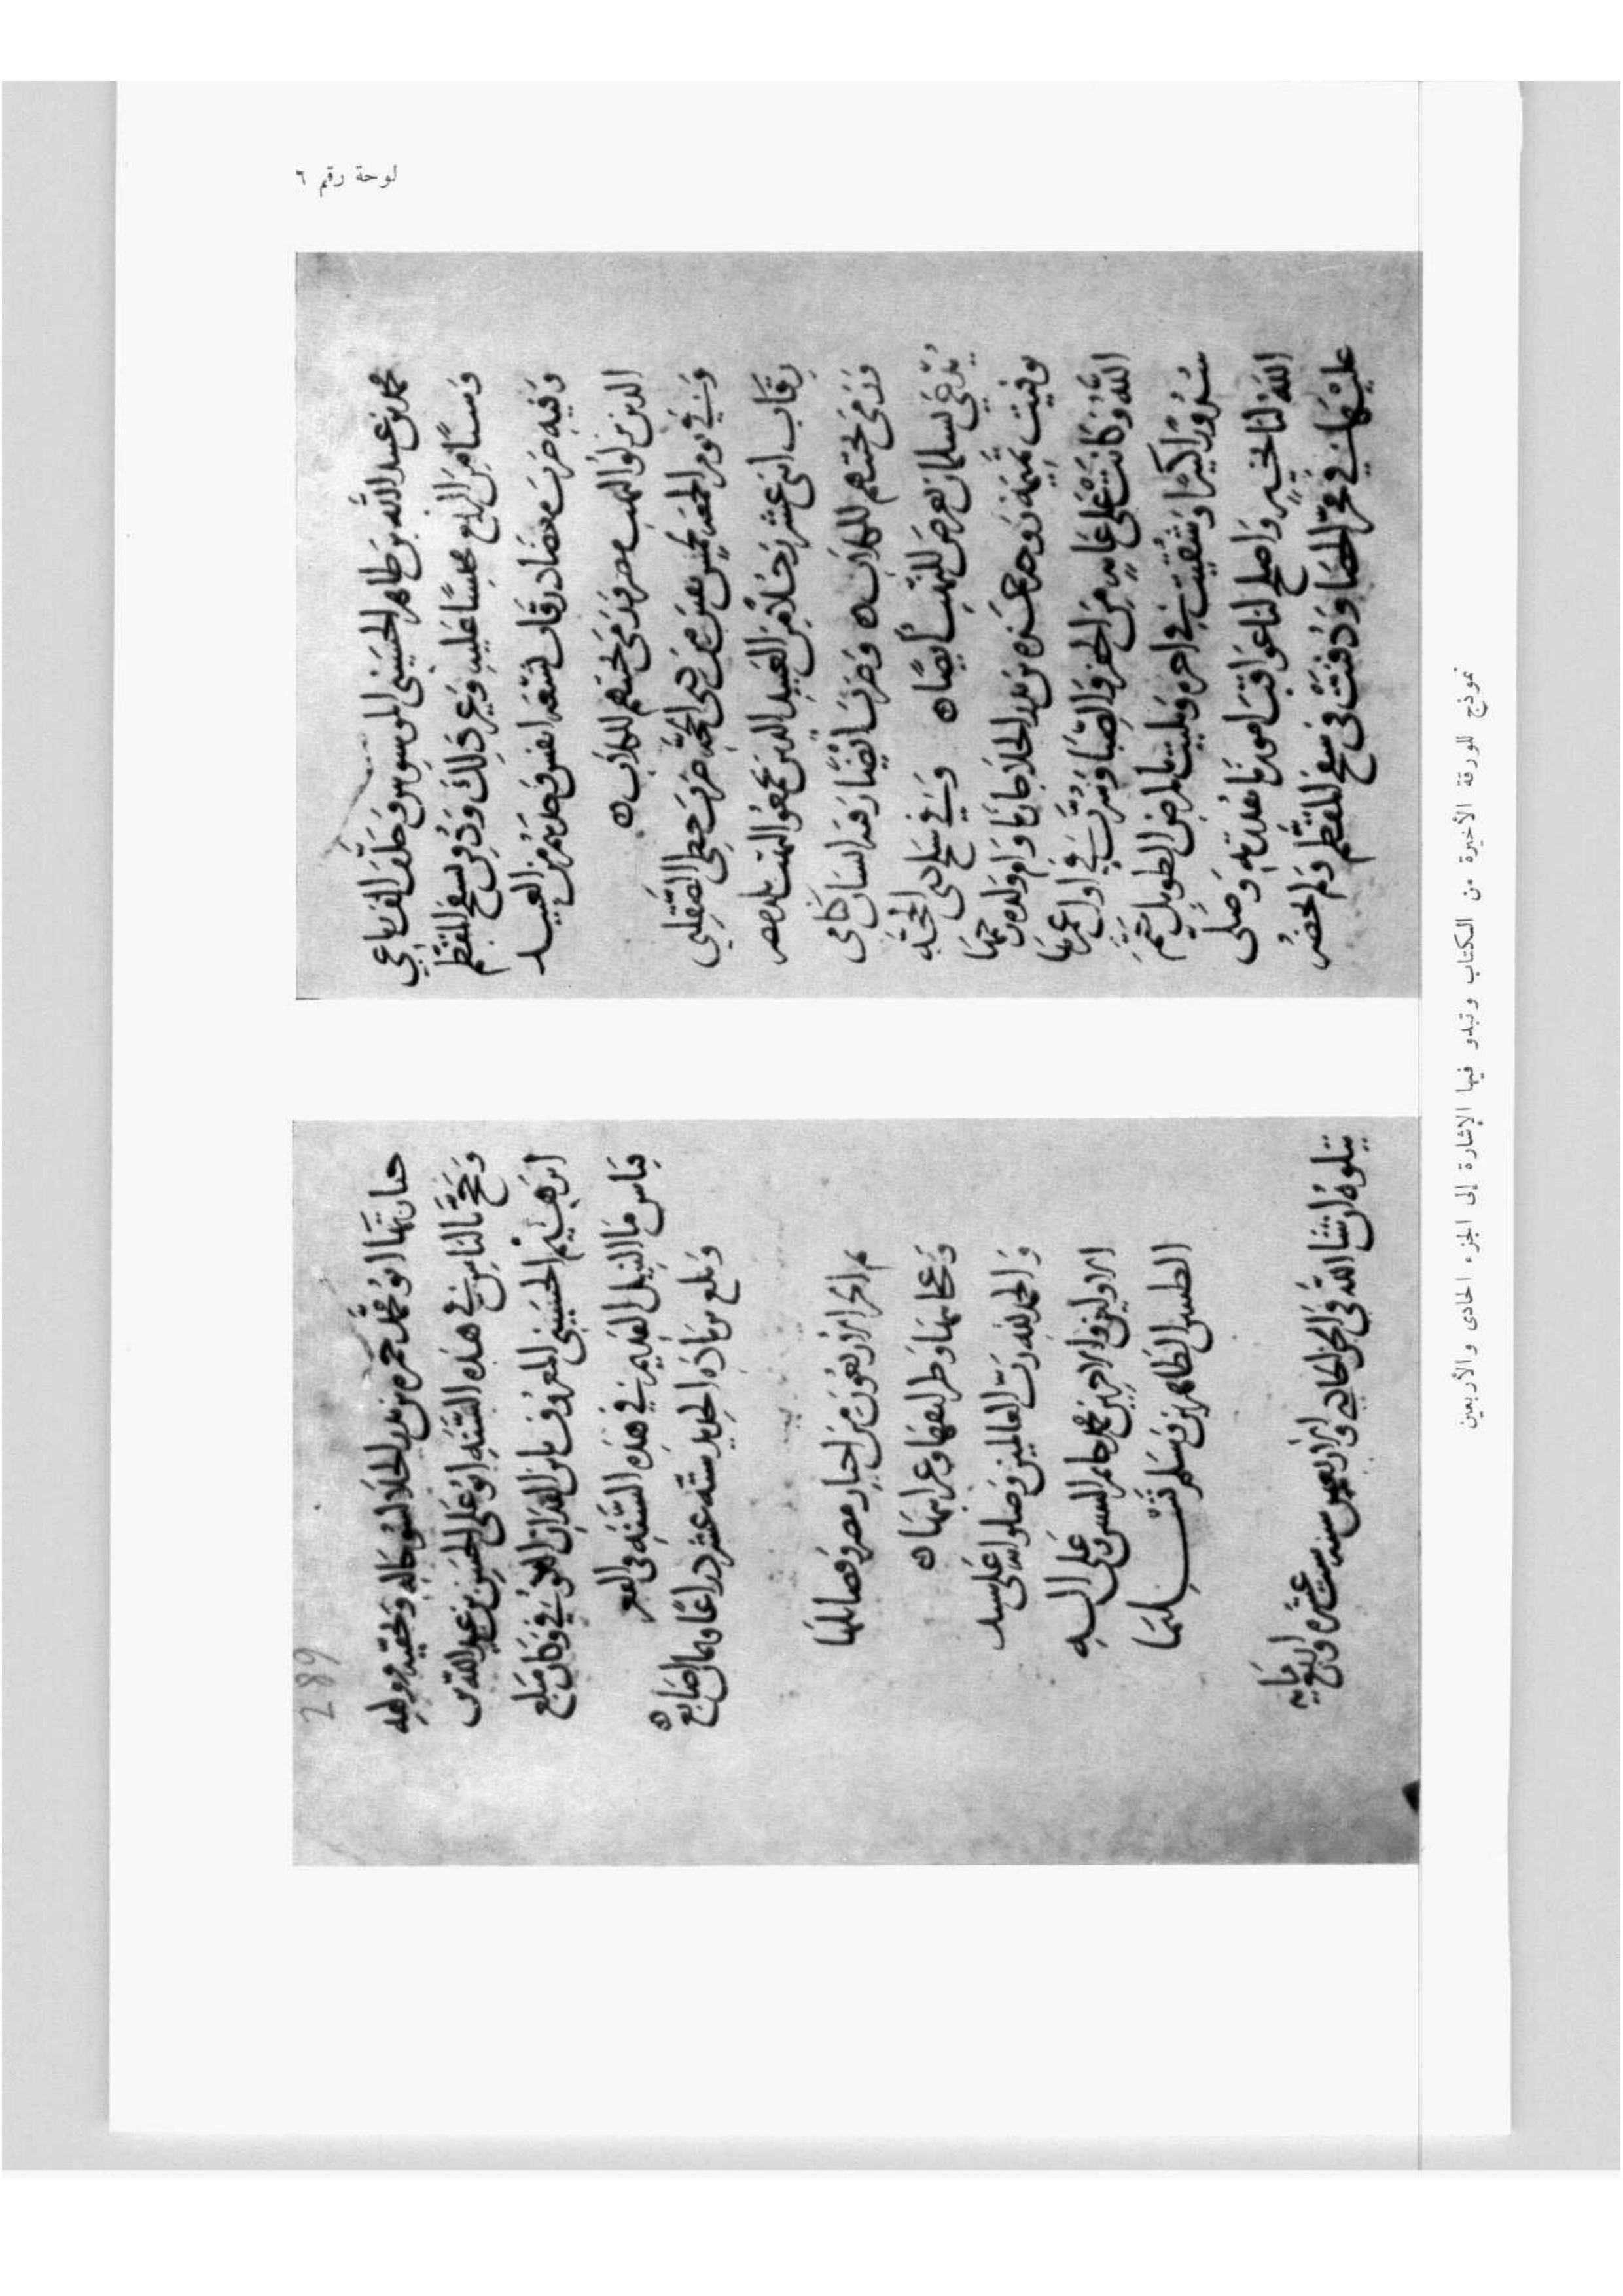 لوحة رقم ٦
محمد بن عبد الله بن طاهر الحسينى الموسوس وخلف الف رباعي
وشيئًا من البلح محبسًا عليه وغير ذلك ودفن بسفح المقطم
وفيه ضرب معضاد رقاب تسعه انفس وجدهم من العبيد
الذين نزلوا النهب مصر فرمى بجثثهم للكلاب ه
وفي يوم الجمعه لخمس بقين من ذى الحجه ضرب حظي الصقلبي
رقاب اثنى عشر رجلًا من العبيد الذين تجمعوا لنهب بلد مصر
ورمى بجثثهم للكلاب ه وضرب ايضًا رقبه انسان كامى
يدعى بسلمان تعرض للنهب ايضًا ه وفي سلخ ذى الحجه
توفيت زوجه حمزه بن بدر الحلا جارنا وام ولده رحمها
الله وكانت على غايه من الحفر والصبا وسرت في اول عمرها
سرورًا كثيرًا وشقيت في اخره وبليت بالمرض الطويل ختم
الله لنا بخير واصلح لنا عواقب امورنا بقدرته وصلى
عليها في فج الحصا ودفنت في سفح المقطم ولم يحضر
289
جنازتها ابو محمد حمزه بن بدر الحلا لسو حاله ولحقته
وحج بالناس في هذه السنه ابو على الحسن بن عبد الله بن
ابرهيم الحسينى المعروف الكوفي وكان مبلغ
قياس ما النيل القديم في هذه السنه في القعر
وبلغ من زياده الجديد سته عشر ذراعًا اصابع ه
تم الجز الاربعون من اخبار مصر وفضائلها
وعجائبها وطرائفها وغرائبها ه
والحمد لله رب العالمين وصلواته على سيد
الاولين والاخرين محمد خاتم النبيين وعلى اله
الطيبين الطاهرين وسلم تسليما
يتلوه ان شا الله في الجز الحادى والاربعين سنه ست عشره واربع مايه
نموذج للورقة الأخيرة من الكتاب وتبدو فيها الإشارة إلى الجزء الحادى والأربعين